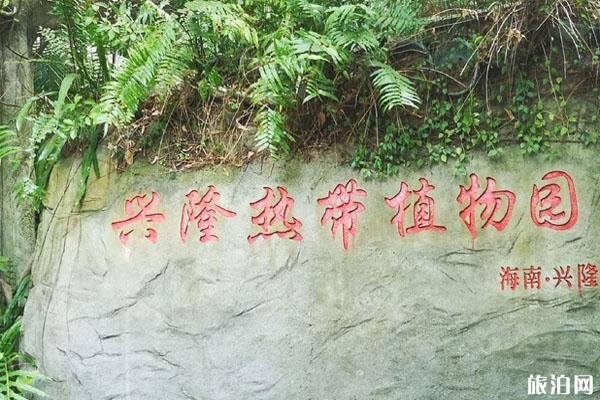 兴隆热带植物园
海南·兴隆
旅泊网